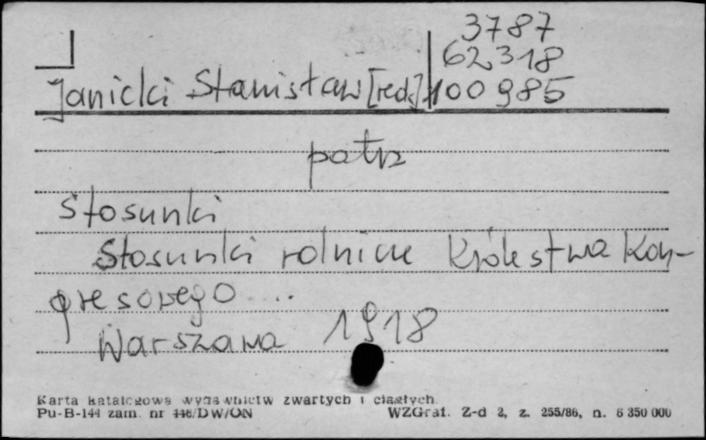 3787
62318
Janicki Stanisław [red.] 100985
patrz
Stosunki
Stosunki rolnicze Królestwa Kon-
gresowego ...
Warszawa 1918
Karta katalogowa wydawnictw zwartych i ciągłych
Pu-B-144 zam. nr 446/DW/ON WZGraf. Z-d 2, z. 255/86, n. 6 350 000